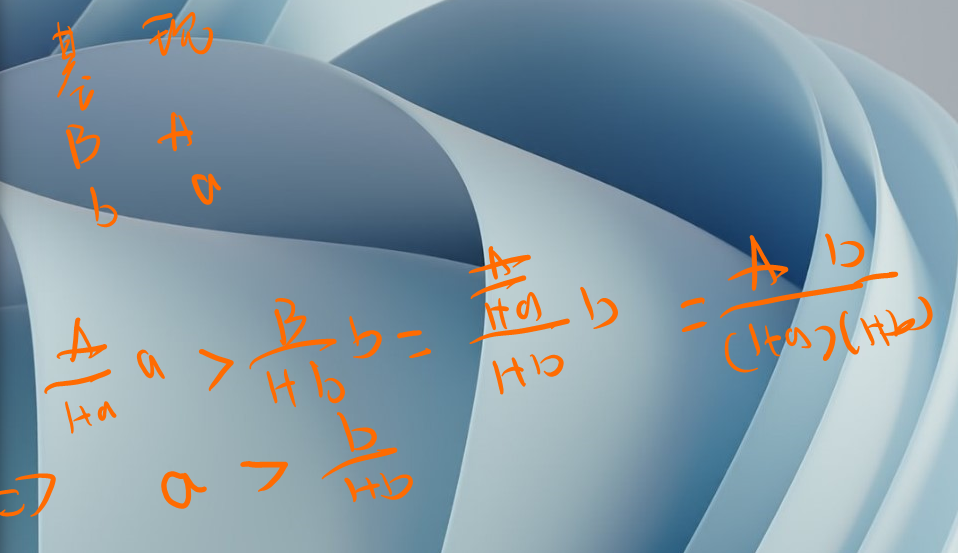 基 现
B A
b a
A/(1+a) a > B/(1+b) b = (A/(1+a))/(1+b) b = A b/((1+a)(1+b))
=> a > b/(1+b)